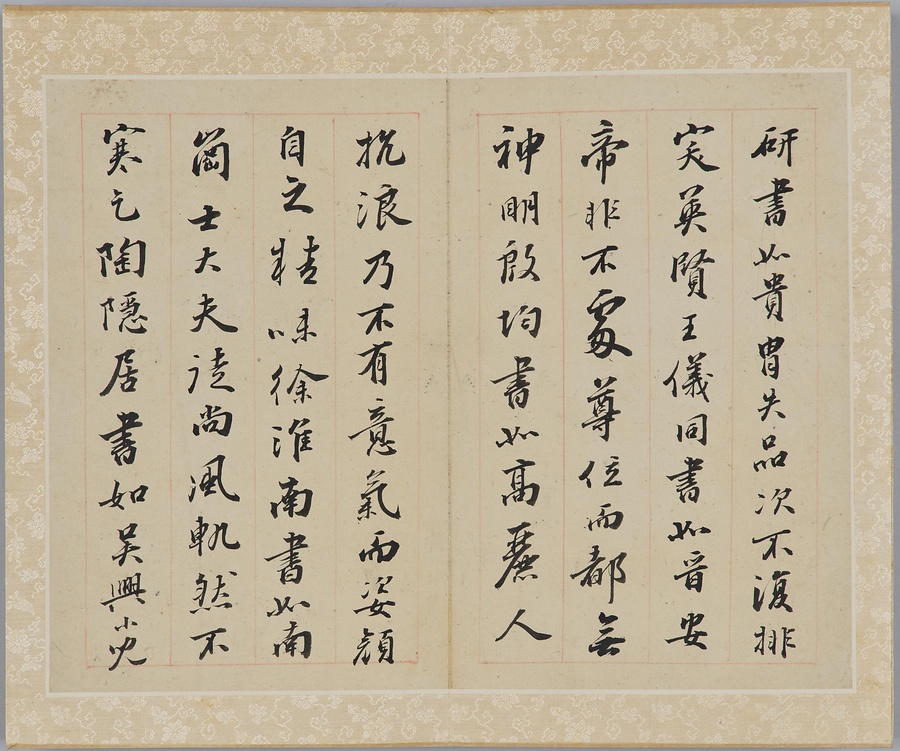 研書如貴胄失品次不復排
突英賢王儀同書如晉安
帝非不處尊位而都無
神明殷均書如高麗人
抗浪乃不有意氣而姿顏
自乏精味徐淮南書如南
崗士大夫徒尚風軌然不
寒乞陶隱居書如吳興小兒